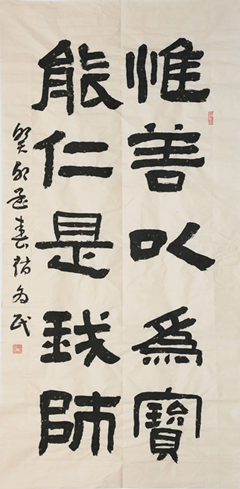 惟善以為寶
能仁是我師
癸卯孟春为民